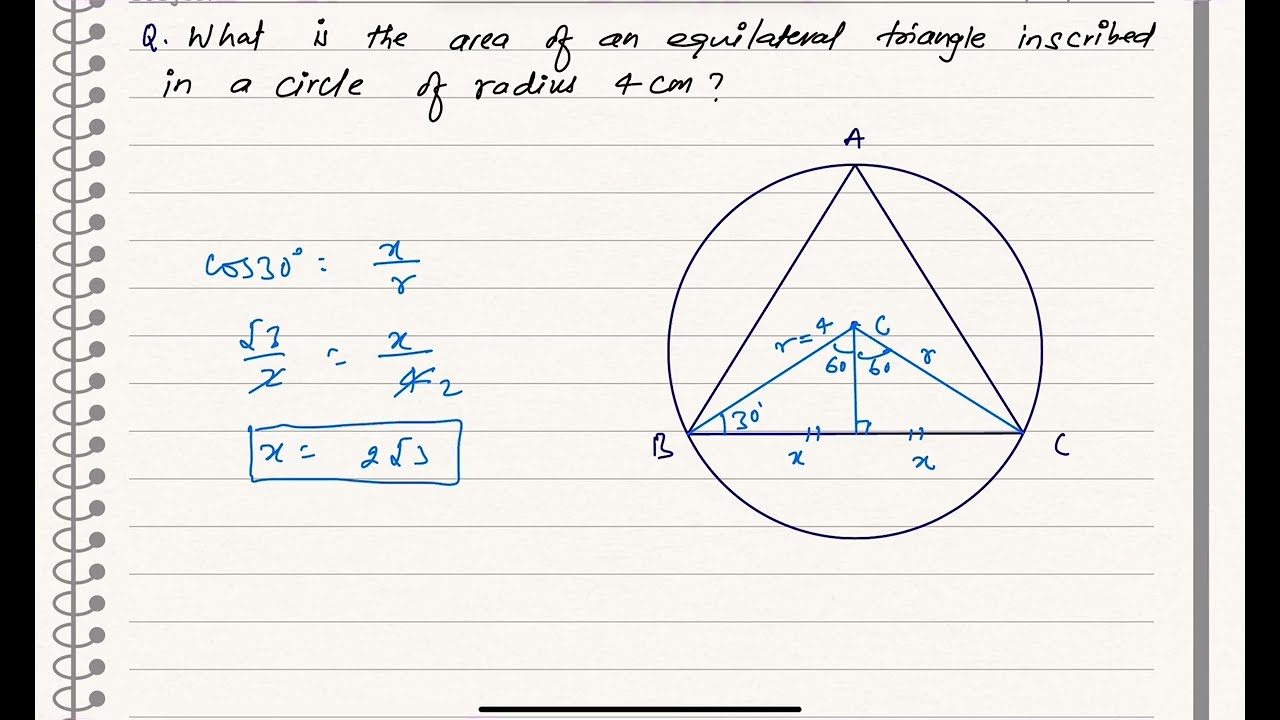 Q. What is the area of an equilateral triangle inscribed
in a circle of radius 4 cm?
A
cos30° = x/r
r = 4
C
r
60
60
√3/2 = x/4 2
30°
x = 2√3
B
x
x
C